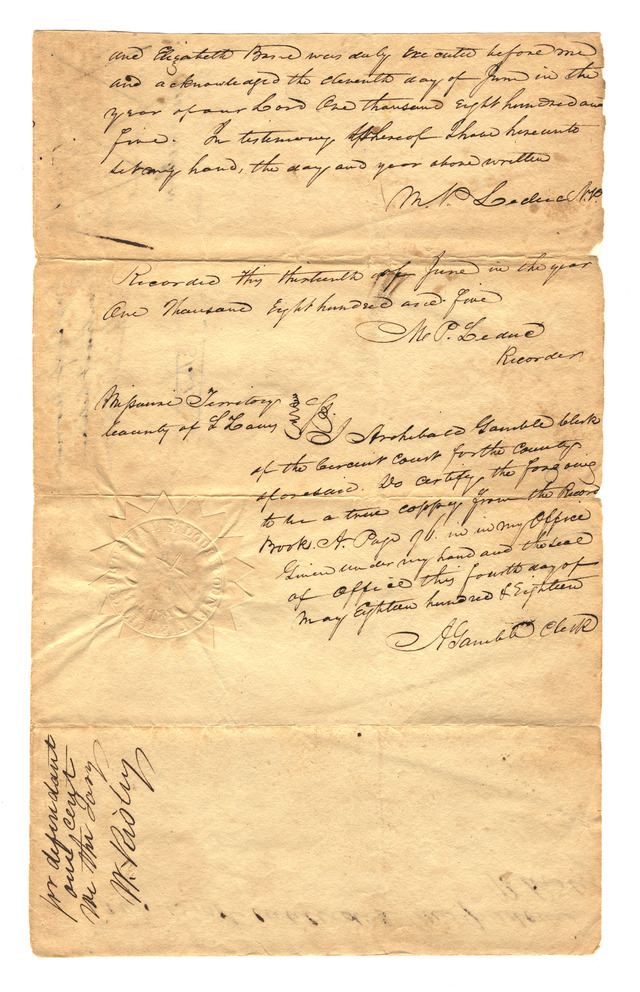 and Elizabeth was duly executed before me
and acknowledged the eleventh day of June in the
year of our Lord One thousand Eight hundred and
five. In testimony Whereof I have hereunto
set my hand, the day and year above written
M. P. Leduc
Recorded this thirteenth of June in the year
One Thousand Eight hundred and five
M. P. Leduc
Recorder
Missouri Territory
County of St Louis
I Archibald Gamble Clerk
of the Circuit Court for the County
aforesaid. Do certify the foregoing
to be a true coppey from the Record
Book. A. Page in my Office
Given under my hand and the seal
of Office this fourth day of
May Eighteen hundred & Eighteen
A Gamble Clerk
for defendant
one cent
we the Jury
W. Risley